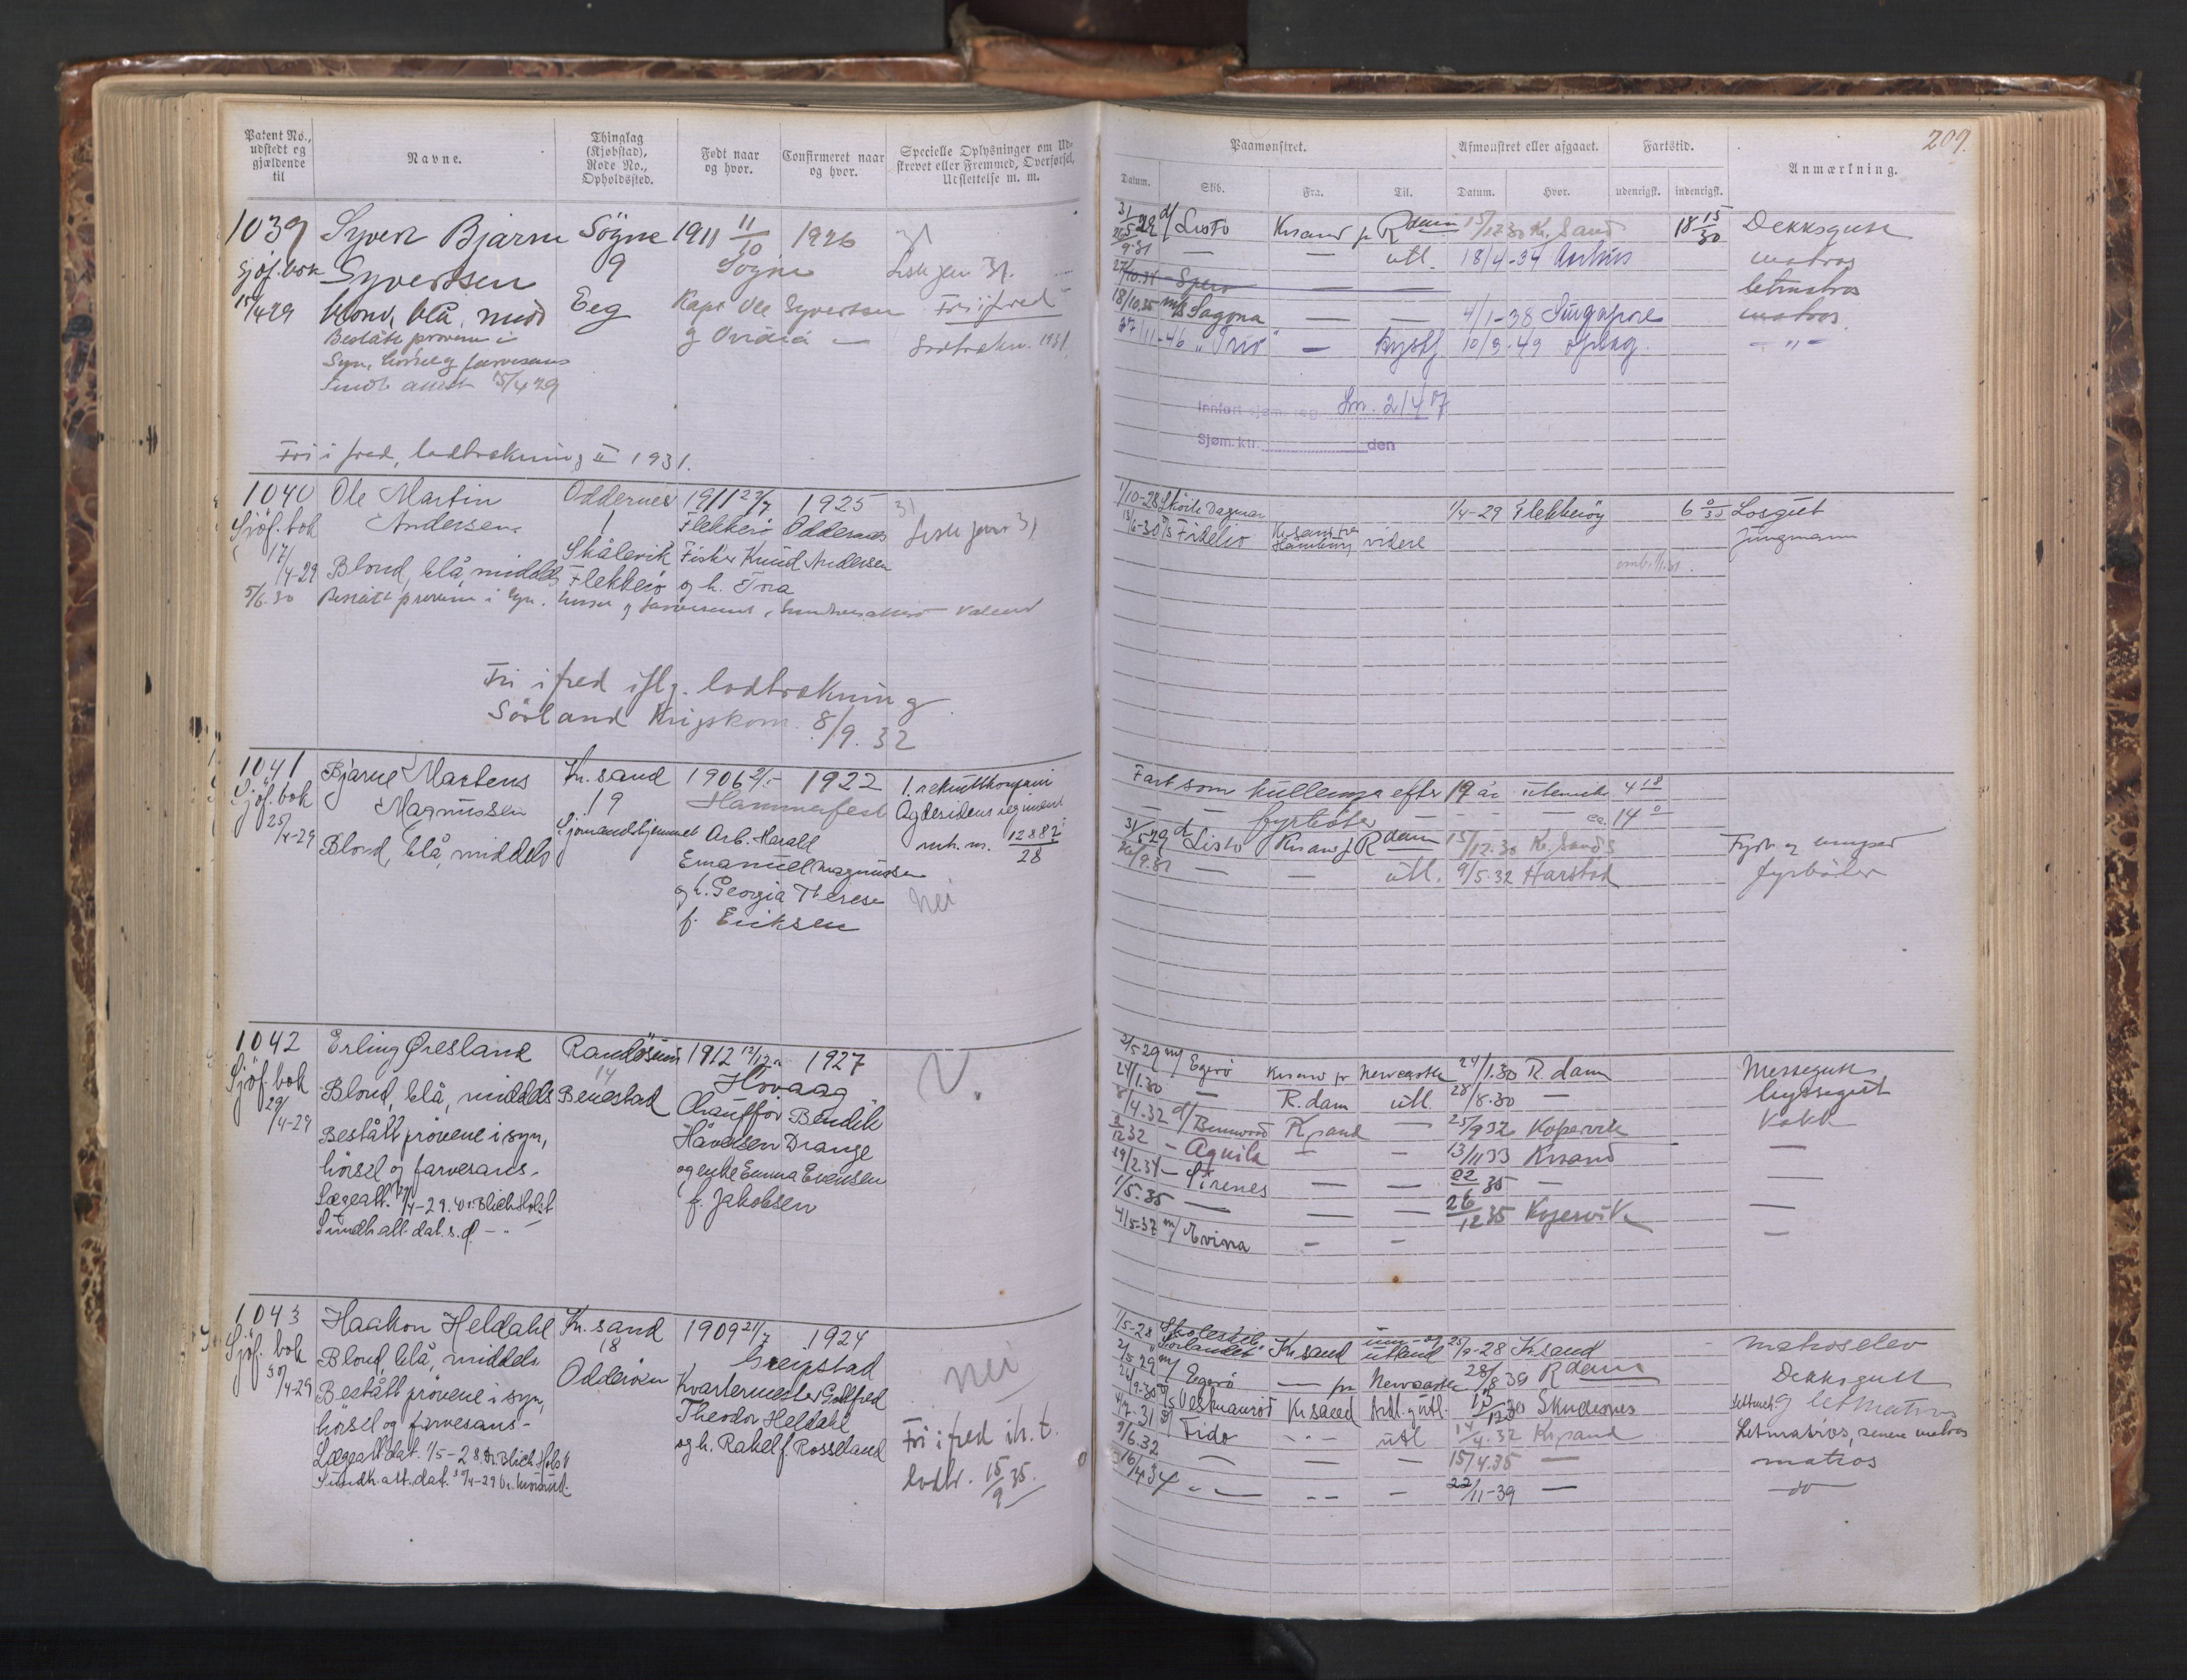 Patent No., udstedt og gjældende til
Navne.
Thinglag (Kjøbstad), Rode No., Opholdssted.
Født naar og hvor.
Confirmeret naar og hvor.
Specielle Oplysninger om Udskrevet eller Fremmed, Overførsel, Udslettelse m. m.
1039 Syvert Bjarne Søgne 1911 11/10 1926 31
Sjøf. bok Syvertsen 9 Søgne
15/4 29 blond, blå, midd Eeg Kapt Ole Syvertsen Fri i fred
Bestått prøvene i
Syn, hørsel og farvesans
Sundh attest 15/4 29
Fri i fred, lodtrekning 1931.
1040 Ole Martin Oddernes 1911 27/7 1925 31
Sjøf. bok Andersen 1 Flekkerø Oddernes
17/4-29 Skålevik Fisker Knud Andersen
Blond, blå, middels Flekkerø og h. Tora
5/6.30 Bestått prøvene i syn.
Fri i fred iflg. lodtrekning
Sørland Krigskom. 8/9.32
1041 Bjarne Martens Kr.sand 1906 1922
Sjøf. bok Magnussen 19 Hammerfest
25/4-29 Sjømandshjemmet Arb. Harald
Blond, blå, middels Emanuel Magnussen
og h. Georgia Therese nei
f. Eriksen
1. rekruttkompani
12882/28
1042 Erling Øresland Randøsund 1912 12/12 1927
Sjøf. bok 14 Høvaag
29/4-29 Blond, blå, middels Benestad Chauffør Bendik
Bestått prøvene i syn, Håvelsen Drange
hørsel og farvesans. og enke Emma Evensen
Lægeatt. 29/4-29. Dr. Blich Holst f. Jakobsen
Sundh att. dat. s.d.
1043 Haakon Heldahl Kr.sand 1909 21/7 1924
Sjøf. bok 18 Greipstad
30/4-29 Blond, blå, middels Oddernes Kvartermester Gotfred nei
Bestått prøvene i syn, Theodor Heldahl
hørsel og farvesans. og h. Rakel f. Rosseland
Lægeatt. dat. 1/5-28 Dr. Blich Holst Fri i fred ih. t.
Sundh. att. dat. 30/4-29 lodtr. 15/9 35.
209.
Paamønstret.
Afmønstret eller afgaaet.
Fartstid.
Anmærkning.
Datum. Skib. Fra. Til. Datum. Hvor. udenrigsk. indenrigsk.
Listo Krsand R dam 15/12 30 Kr. Sand 18 15/30 Dekksgutt
utl. 18/4-34 Aarhus matros
27/10.34 Spero letmatros
18/10.35 m/s Sagona 4/1-38 Singapore matros
"Trio" 10/3-49 oplag
Innført sjøm. reg. 21/4 47
Sjøm. ktr. den
1/10-28 Skøite Dagmar 1/4-29 Flekkerøy 6 0/30 Losgut
Fidelio Kr.sand Hamburg videre Jungmann
Fart som kullemper efter 19 år utenriks 4 18
fyrbøter ca. 14 0
31/5 29 d Listo Krsand R dam 15/12.30 Kr. Sand Fyrb og lemper
utl. 9/5.32 Harstad fyrbøter
2/5 29 m/ Egerø Krsand Newcastle 24/1.30 R.dam Messegutt
24/1.30 R.dam utl. 28/8.30 byssegut
8/4.32 d/ Bennwood Kr.sand 25/9 32 Kopervik Kokk
Aquila 13/11 33 Krsand
19/2.34 Sirenes 22/6 35
1/5.35 26/12 35 Kopervik
4/5-37 m/ Elvira
1/5-28 Skoleskib "Sørlandet" Kr.sand inn- og utland 25/9-28 Krsand matroselev
2/5.29 m/ Egerø Newcastle 28/8 30 R dam Dekksgutt
Vestmanrød Kr.sand Skudenes letmatros
4/7.31 Fido utl 14/4.32 Kr.sand Letmatros, senere matros
9/6.32 15/4.35 matros
16/4 34 22/11-39 do